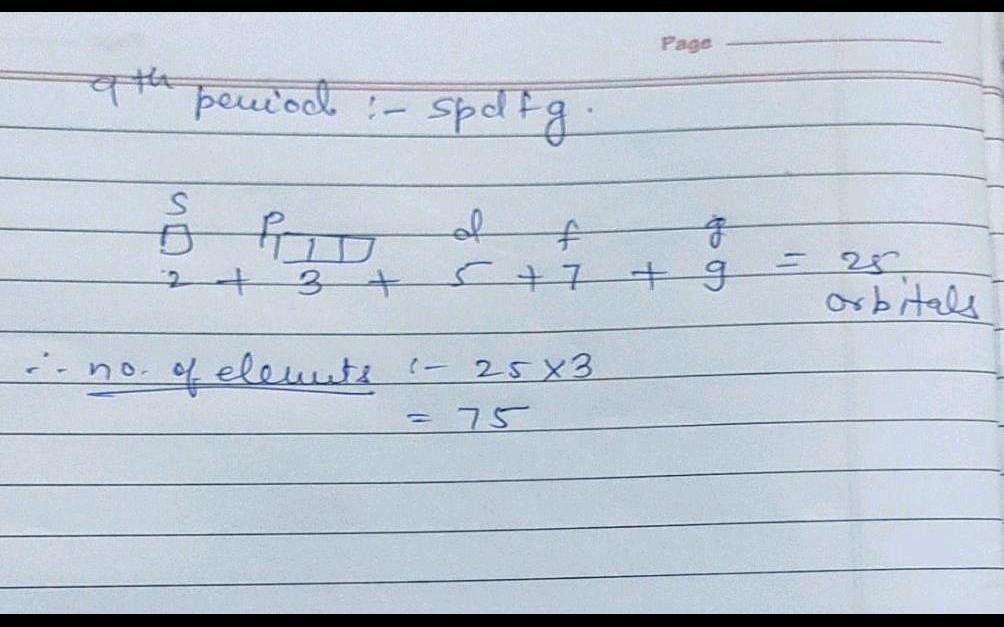 Page
9th period :- spdfg.
S P d f g
2 + 3 + 5 + 7 + 9 = 25 orbitals
∴ no. of elements :- 25 × 3
= 75